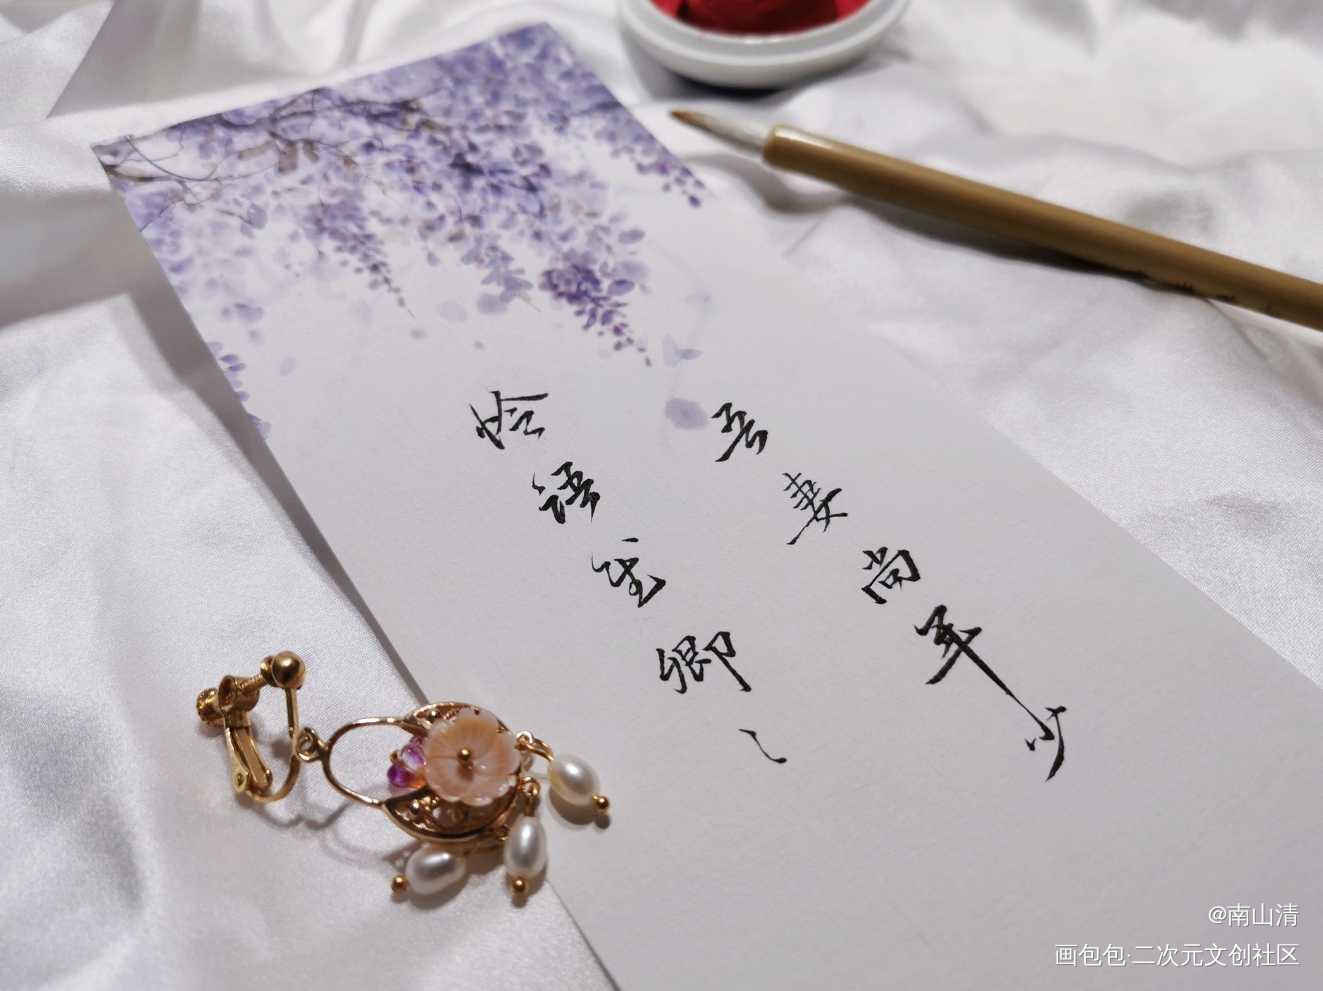 吾妻尚年少
怜语生卿卿
@南山清
画包包·二次元文创社区